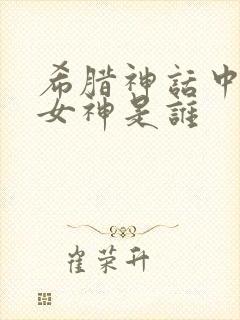 希腊神話中
女神是誰
崔荣升